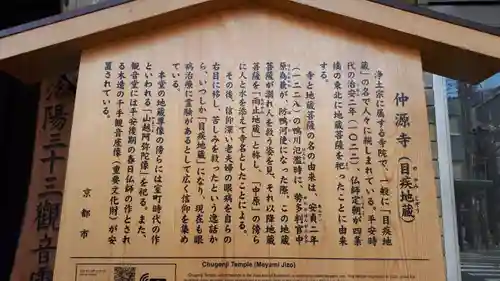 仲源寺（目疾地蔵）
ちゅうげんじ めやみじぞう
浄土宗に属する寺院で、一般に「目疾地
蔵」の名で人々に親しまれている。平安時
代の治安二年（一〇二二）、仏師定朝が四条
橋の東北に地蔵菩薩を祀ったことに由来
する。
寺名と地蔵菩薩の名の由来は、安貞二年
（一二二八）の鴨川氾濫時に、勢多判官中
原為兼が、防鴨河使になった際、この地蔵
菩薩が溺れ人を救う姿を見、それ以降地蔵
菩薩を「雨止地蔵」と称し、「中原」の傍ら
に人と水を添えて寺名としたことによる。
その後、信仰深い老夫婦の眼病を自らの
右目に移し、苦しみを救ったという逸話か
ら、いつしか「目疾地蔵」になり、現在も眼
病治療に霊験があるとして広く信仰を集め
ている。
本堂の地蔵尊像の傍らには室町時代の作
といわれる「山越阿弥陀像」を祀る。また、
観音堂には平安後期の春日仏師の作とされ
る木造の千手観音座像（重要文化財）が安
置されている。
京都市
洛陽三十三観音
Chugenji Temple (Meyami Jizo)